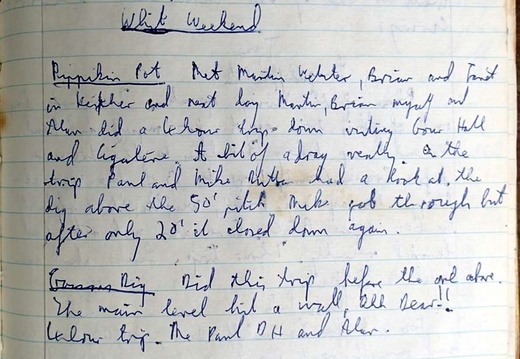 Whit Weekend
Pippikin Pot Met Martin Webster, Brian and Janet
in kitchen and next day Martin, Brian myself and
Alan did a 6 hour trip down visiting Gour Hall
and Cigalère. A bit of a drag really. On the
trip Paul and Mike had a look at the
dig above the 50' pitch Mike got through but
after only 20' it closed down again.
Dig Did this trip before the one above.
The main level hit a wall, Oh Dear!!
6 hour trip. Me Paul DH and Alan.